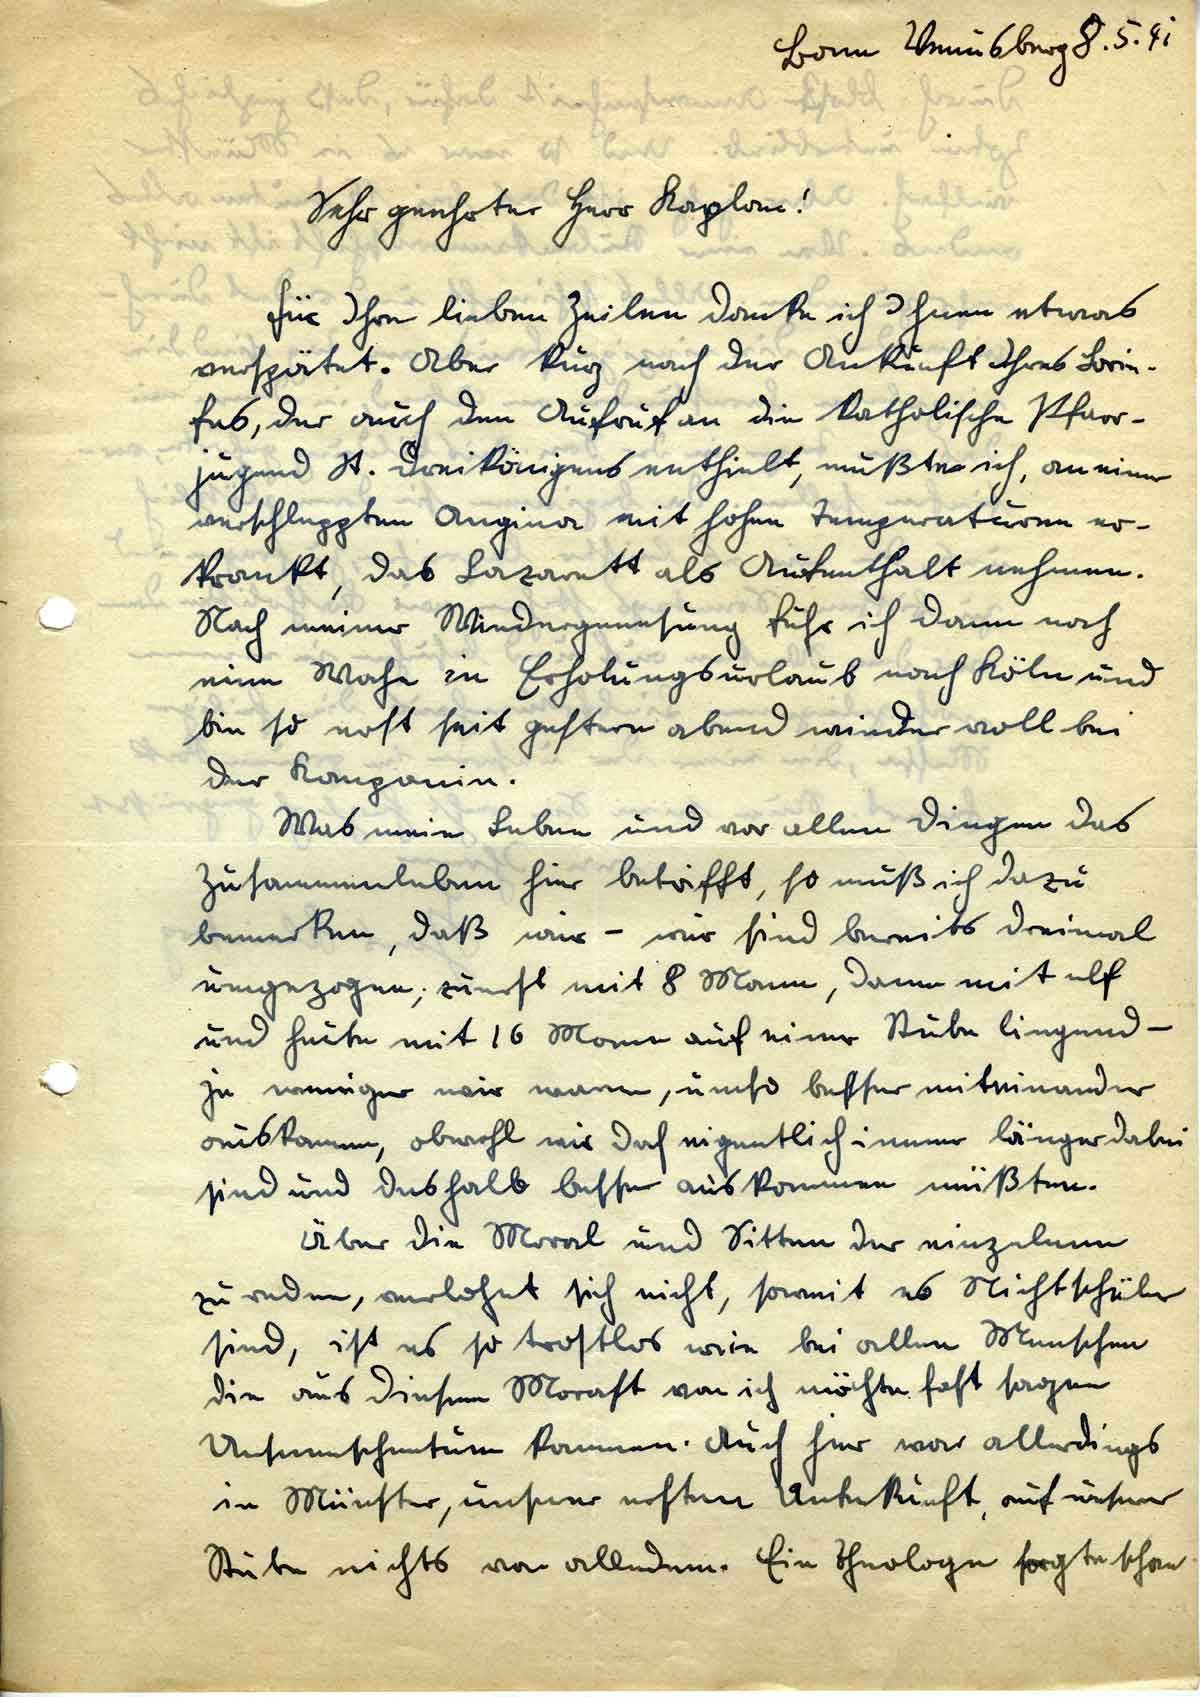 Bonn Venusberg 8.5.41
Sehr geehrter Herr Kaplan!
Für Ihre lieben Zeilen danke ich Ihnen etwas
verspätet. Aber kurz nach der Ankunft Ihres Brie-
fes, der auch den Aufruf an die katholische Pfarr-
jugend St. Dreikönigens enthielt, mußte ich, an einer
verschleppten Angina mit hohen Temperaturen er-
krankt, das Lazarett als Aufenthalt nehmen.
Nach meiner Wiedergenesung fuhr ich dann noch
eine Woche in Erholungsurlaub nach Köln und
bin so erst seit gestern abend wieder voll bei
der Kompanie.
Was mein Leben und vor allen Dingen das
Zusammenleben hier betrifft, so muß ich dazu
bemerken, daß wir – wir sind bereits dreimal
umgezogen; zuerst mit 8 Mann, dann mit elf
und heute mit 16 Mann auf einer Stube liegend –
je weniger wir waren, umso besser miteinander
auskamen, obwohl wir doch eigentlich immer länger dabei
sind und deshalb besser auskommen müßten.
Über die Moral und Sitten der einzelnen
zu reden, verlohnt sich nicht, soweit es Nichtschüler
sind, ist es so trostlos wie bei allen Menschen
die aus diesem Morast von ich möchte fast sagen
Untermenschentum kommen. Auch hier war allerdings
in Münster, unserer ersten Unterkunft, auf unserer
Stube nichts von alledem. Ein Theologe sorgte schon